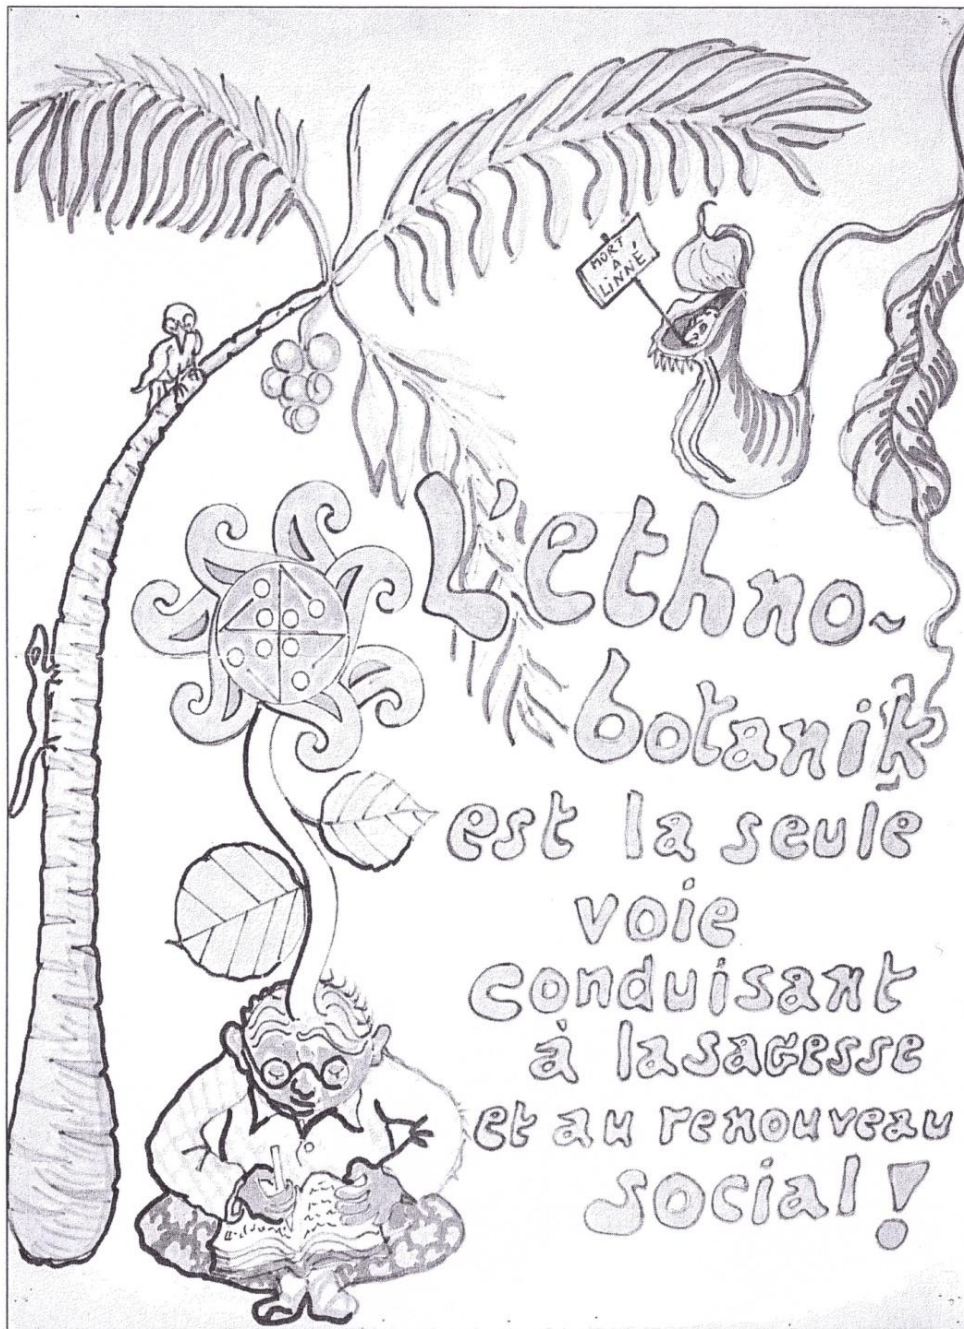 MORT
A
LiNNÉ
L'ethno~
botanik
est la seule
voie
conduisant
à lasagesse
et au renouveau
social !